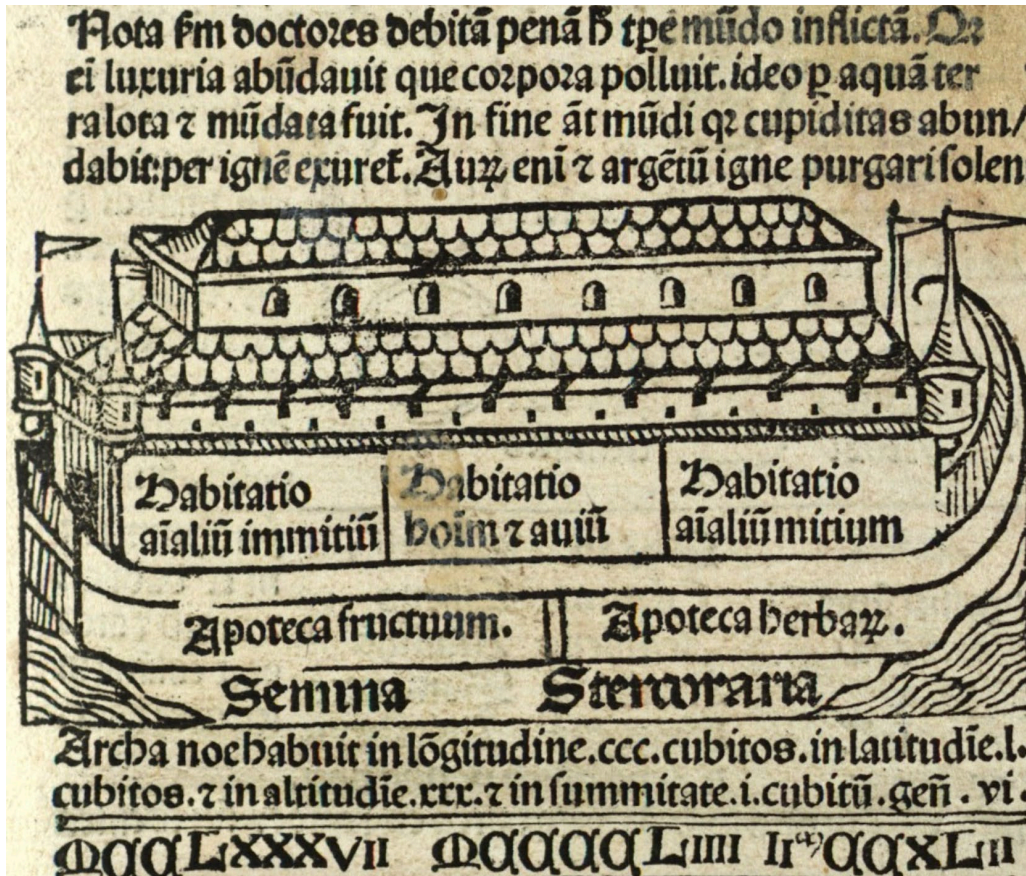 Nota ẜm doctores debitã penã ħ tp̃e mũdo inflictã. Qꝛ
ei luxuria abũdauit que corpora polluit. ideo ꝑ aquã ter
ra lota ⁊ mũdata fuit. In fine ãt mũdi qꝛ cupiditas abun/
dabit: per ignẽ exuret᷑. Auꝝ eni ⁊ argẽtũ igne purgari solen
Habitatio
aĩaliũ immitiũ
Habitatio
hoĩm ⁊ auiũ
Habitatio
aĩaliũ mitium
Apoteca fructuum.
Apoteca herbaꝝ.
Semina
Stercoraria
Archa noe habuit in lõgitudine .ccc. cubitos. in latitudĩe .l.
cubitos. ⁊ in altitudĩe .xxx. ⁊ in summitate .i. cubitũ. geñ. vi.
MCCLXXXVII MCCCCCLIIII IIᴹCCXLII